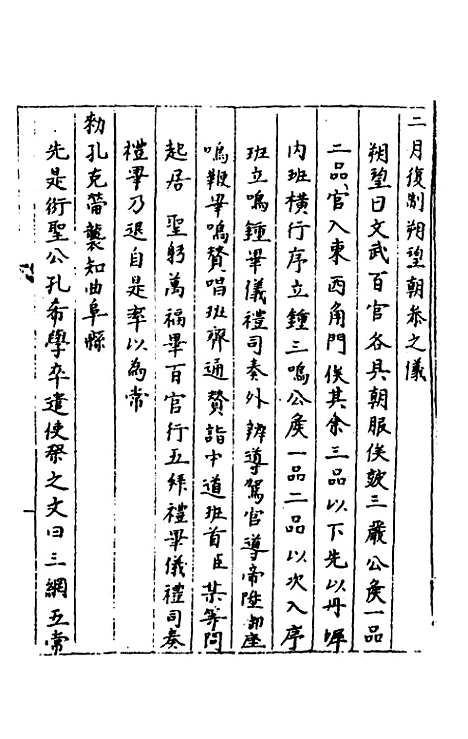 二月復制朔望朝叅之儀
朔望日文武百官各具朝服俟鼓三嚴公侯一品
二品官入東西角門俟其余三品以下先以丹墀
内班橫行序立鍾三鳴公侯一品二品以次入序
班立鳴鍾畢儀禮司奏外辨導駕官導帝陞御座
鳴鞭畢鳴贊唱班齊通贊詣中道班首臣某等問
起居 聖躬萬福畢百官行五拜禮畢儀禮司奏
禮畢乃退自是率以為常
勑孔克𦸣襲知曲阜縣
先是衍聖公孔希學卒遣使祭之文曰三綱五常